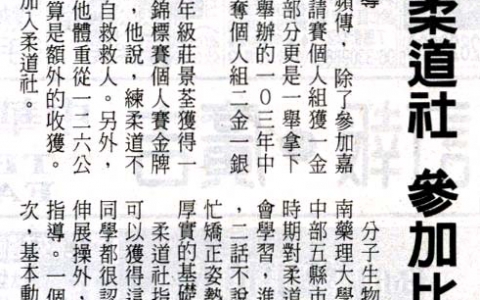 柔道社 參加比
頻傳，除了參加嘉
請賽個人組獲一金
部分更是一舉拿下
舉辦的一〇三年中
奪個人組二金一銀
年級莊景荃獲得一
錦標賽個人賽金牌
，他說，練柔道不
自救救人。另外，
他體重從一二六公
算是額外的收獲。
加入柔道社。
分子生物
南藥理大學
中部五縣市
時期對柔道
會學習，進
，二話不說
忙矯正姿勢
厚實的基礎
柔道社指
可以獲得這
同學都很認
伸展操外，
指導。一個
次，基本動